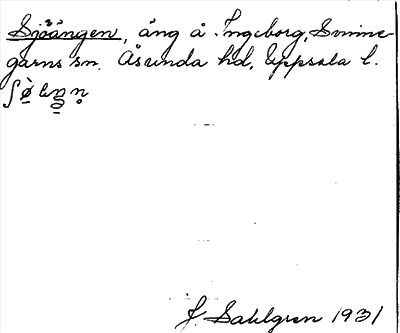 Sjöängen, äng å Ingeborg, Svinne-
garns sn. Åsunda hd, Uppsala l.
J Sahlgren 1931